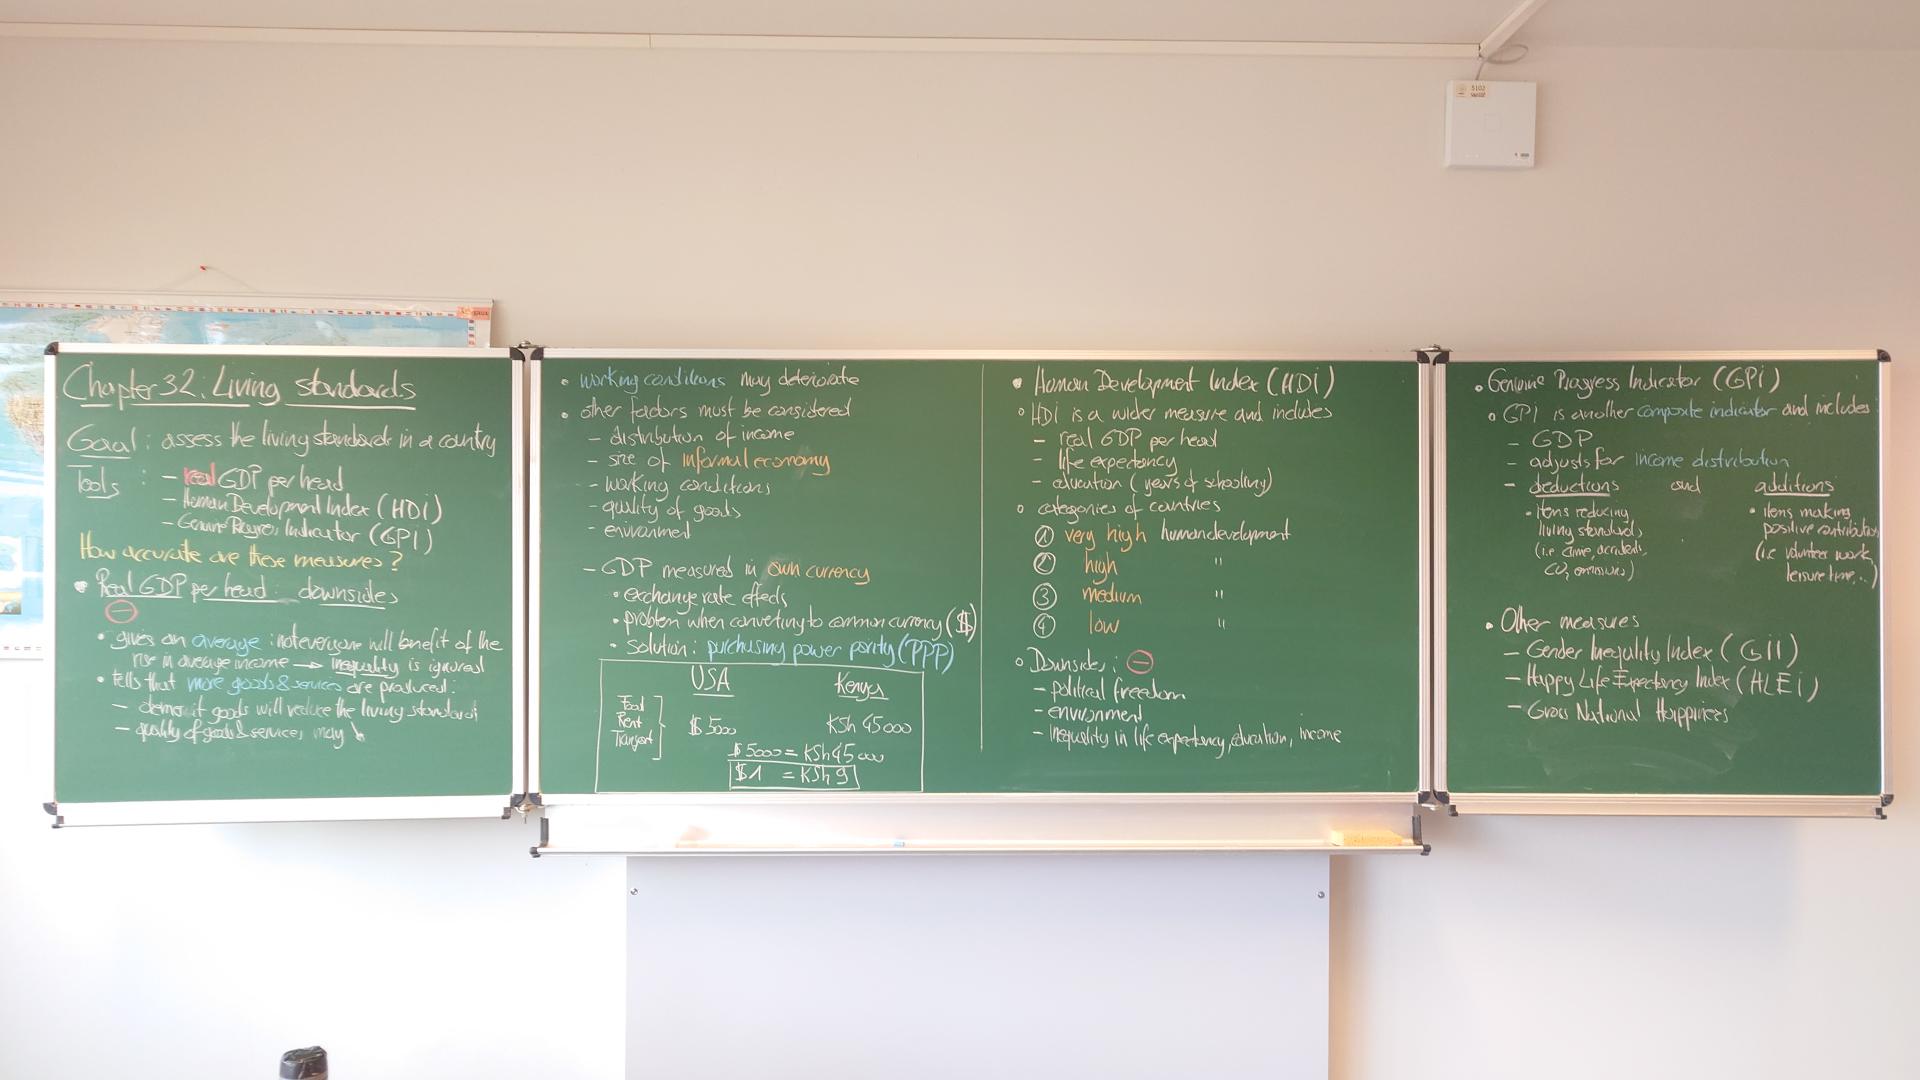 Chapter 32: Living standards
Goal: assess the living standards in a country
Tools: - real GDP per head
- Human Development Index (HDi)
- Genuine Progress Indicator (GPi)
How accurate are these measures?
• Real GDP per head: downsides
⊖
• gives an average: not everyone will benefit of the
rise in average income → inequality is ignored
• tells that more goods & services are produced:
- demerit goods will reduce the living standard
- quality of goods & services may ↘
• working conditions may deteriorate
• other factors must be considered
- distribution of income
- size of informal economy
- working conditions
- quality of goods
- environment
- GDP measured in own currency
• exchange rate effects
• problem when converting to common currency ($)
• Solution: purchasing power parity (PPP)
USA Kenya
Food
Rent $ 5000 KSh 45 000
Transport
$ 5000 = KSh 45 000
$ 1 = KSh 9
• Human Development Index (HDi)
° HDi is a wider measure and includes
- real GDP per head
- life expectancy
- education (years of schooling)
° categories of countries
① very high human development
② high "
③ medium "
④ low "
° Downsides: ⊖
- political freedom
- environment
- inequality in life expectancy, education, income
• Genuine Progress Indicator (GPi)
° GPi is another composite indicator and includes:
- GDP
- adjusts for income distribution
- deductions and additions
• items reducing
living standards
(i.e crime, accidents,
CO₂ emissions)
• items making
positive contribution
(i.e volunteer work,
leisure time,..)
• Other measures
- Gender Inequality Index (GII)
- Happy Life Expectancy Index (HLEi)
- Gross National Happiness
5102